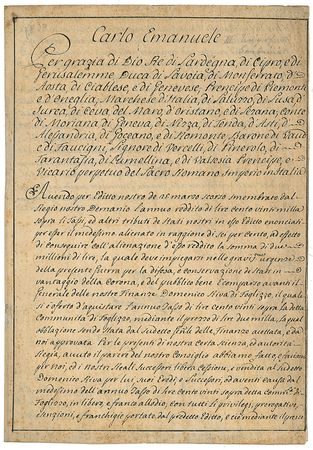 Carlo Emanuele
Per grazia di Dio Re di Sardegna, di Cipro, e di
Gerusalemme, Duca di Savoia, di Monferrato, d'
Aosta, di Ciablese, e di Genevese, Prencipe di Piemonte
e d'Oneglia, Marchese d'Italia, di Saluzzo, di Susa, d'
Ivrea, di Ceva, del Maro, d'Oristano, e di Sezana, Conte
di Moriana, di Geneva, di Nizza, di Tenda, d'Asti, d'
Alessandria, di Goceano, e di Romonte, Barone di Vaud
e di Faucigni, Signore di Vercelli, di Pinerolo, di
Tarantasia, di Lumellina, e di Valsesia, Prencipe, e
Vicario perpetuo del Sacro Romano Imperio in Italia
Avendo per Editto nostro de 28 marzo scorso smembrato dal
Regio nostro Demanio l'annuo reddito di lire cento venti mila
sopra li Tassi, ed altri tributi de Stati nostri in esso Editto enonciati
per esser il medesimo alienato in raggion di sei per cento, ad effetto
di conseguire coll'alienazione d'esso reddito la somma di due
millioni di lire, la quale deve impiegarsi nelle gravi urgenze
della presente guerra per la difesa, e conservazione de Stati in
vantaggio della Corona, e del pubblico bene E comparso avanti il
Generale delle nostre Finanze Domenico Riva di Foglizzo, il quale
si è offerto d'aquistare l'annuo Tasso di lire cento venti sopra la detta
Communità di Foglizzo, mediante il prezzo di lire due milla, la qual
obblazione sendo stata dal sudetto Genle delle Finanze accettata, e da
noi approvata. Per le presenti di nostra certa scienza, ed autorità
Regia, avuto il parere del nostro Consiglio abbiamo fatto, e facciamo
per noi, ed i nostri Reali Successori libera cessione, e vendita al sudetto
Domenico Riva per lui, suoi Eredi, e Successori, ed aventi causa dal
medesimo dell'annuo Tasso di lire cento venti sopra detta Communità di
Foglizzo, in libero, e franco allodio, con tutti li privilegi, prerogative,
esenzioni, e franchigie portate dal predetto Editto, e ciò mediante il prezzo